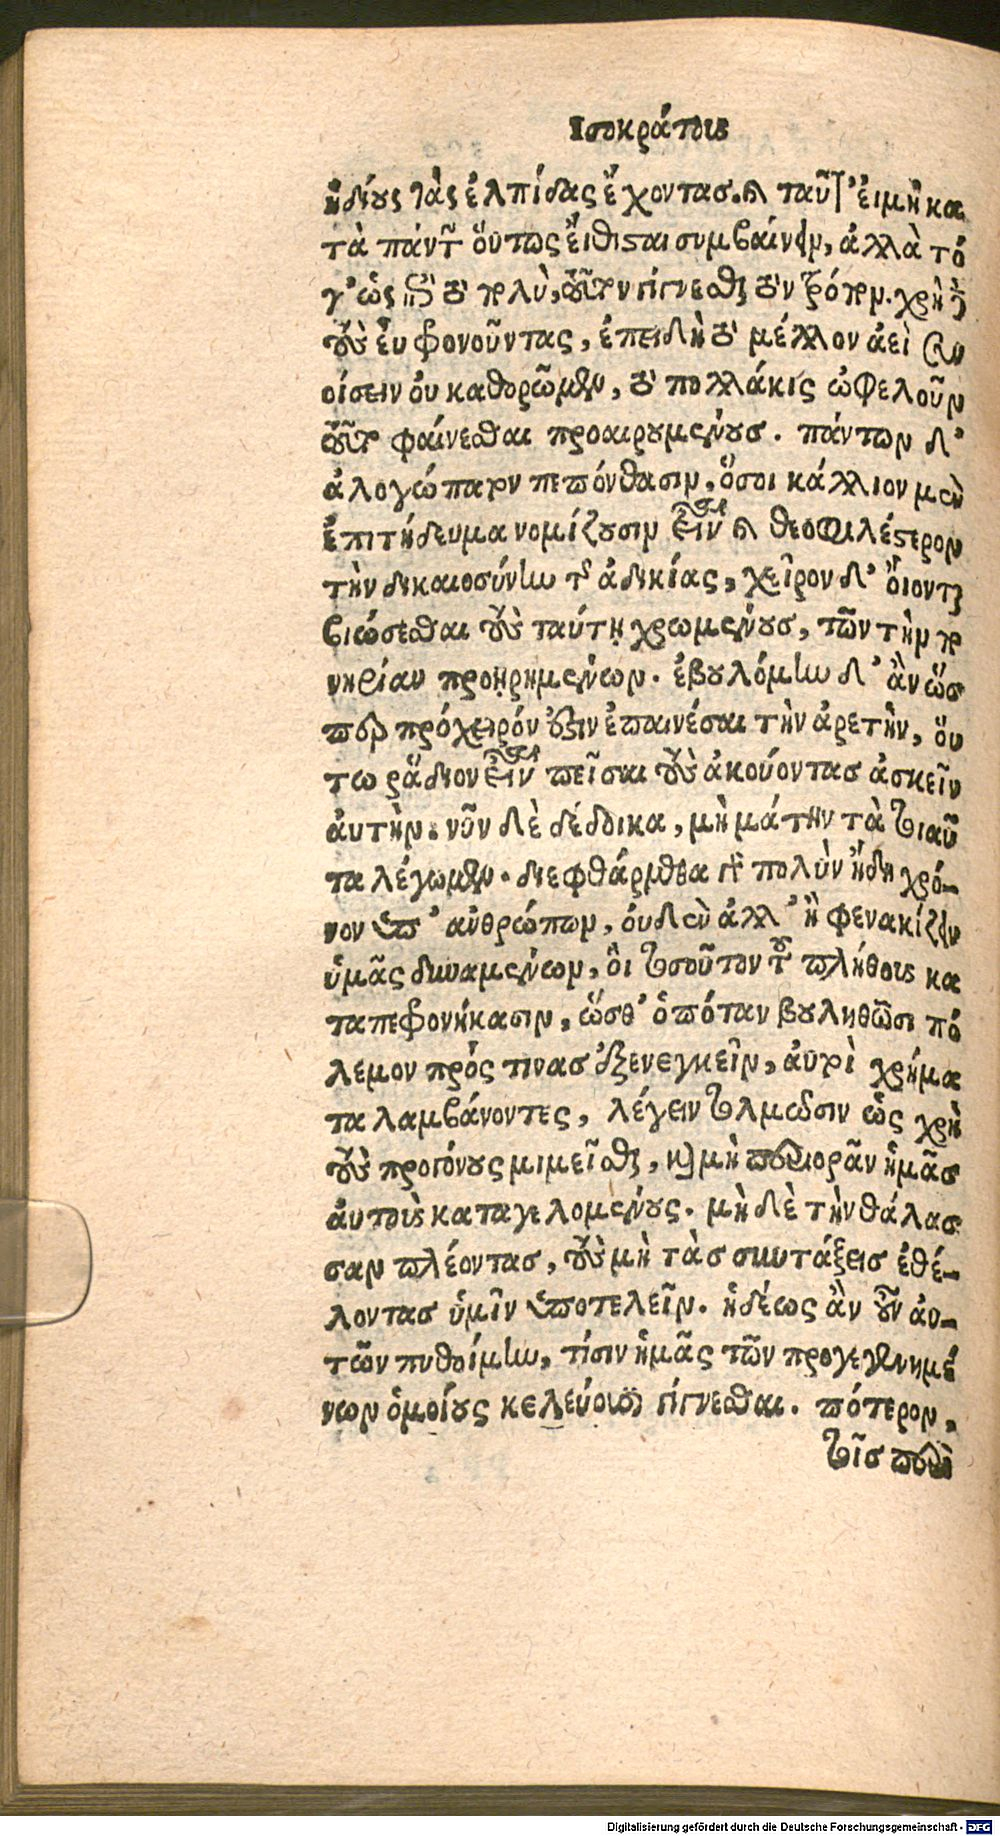 Ισοκράτους
ἡδίους τὰς ἐλπίδας ἔχοντασ. καὶ ταῦτ’ εἰ μὴ κα
τὰ πάντων οὕτως εἴθισται συμβαίνειν, ἀλλὰ τό
γ’ ὡς ἐπὶ τὸ πολὺ, τοῦτον γίγνεσθαι τὸν τρόπον. χρὴ δὲ
τοὺς εὖ φρονοῦντας, ἐπειδὴ τὸ μέλλον ἀεὶ συν
οίσειν οὐ καθορῶμεν, τὸ πολλάκις ὠφελοῦν
τοῦτο φαίνεσθαι προαιρουμένουσ. πάντων δ’
ἀλογώτατον πεπόνθασιν, ὅσοι κάλλιον μὲν
ἐπιτήδευμα νομίζουσιν εἶναι καὶ θεοφιλέστερον
τὴν δικαιοσύνην τῆς ἀδικίας, χεῖρον δ’ οἴονται
βιώσεσθαι τοὺς ταύτῃ χρωμένουσ, τῶν τὴν πο
νηρίαν προῃρημένων. ἐβουλόμην δ’ ἂν ὥσ
περ πρόχειρόν ἐστιν ἐπαινέσαι τὴν ἀρετὴν, οὕ
τω ῥᾴδιον εἶναι πεῖσαι τοὺς ἀκούοντασ ἀσκεῖν
ἀυτὴν. νῦν δὲ δέδοικα, μὴ μάτην τὰ τοιαῦ
τα λέγωμεν. διεφθάρμεθα γὰρ πολὺν ἤδη χρό-
νον ὑπ’ ἀνθρώπων, οὐδὲν ἀλλ’ ἢ φενακίζειν
ὑμᾶς δυναμένων, οἳ τοσοῦτον τοῦ πλήθους κα
ταπεφρονήκασιν, ὥσθ’ ὁπόταν βουληθῶσι πό
λεμον πρός τινασ ἐξενεγκεῖν, ἀυτοὶ χρήμα
τα λαμβάνοντες, λέγειν τολμῶσιν ὡς χρὴ
τοὺς προγόνους μιμεῖσθαι, καὶ μὴ περιορᾶν ἡμᾶσ
ἀυτοὺς καταγελομένους. μὴ δὲ τὴν θάλασ
σαν πλέοντασ, τοὺς μὴ τὰσ συντάξεισ ἐθέ-
λοντασ ὑμῖν ὑποτελεῖν. ἡδέως ἂν οὖν ἀυ-
τῶν πυθοίμην, τίσιν ἡμᾶς τῶν προγεγενημέ
νων ὁμοίους κελεύουσι γίγνεσθαι. πότερον,
τοῖσ περὶ
Digitalisierung gefördert durch die Deutsche Forschungsgemeinschaft - DFG